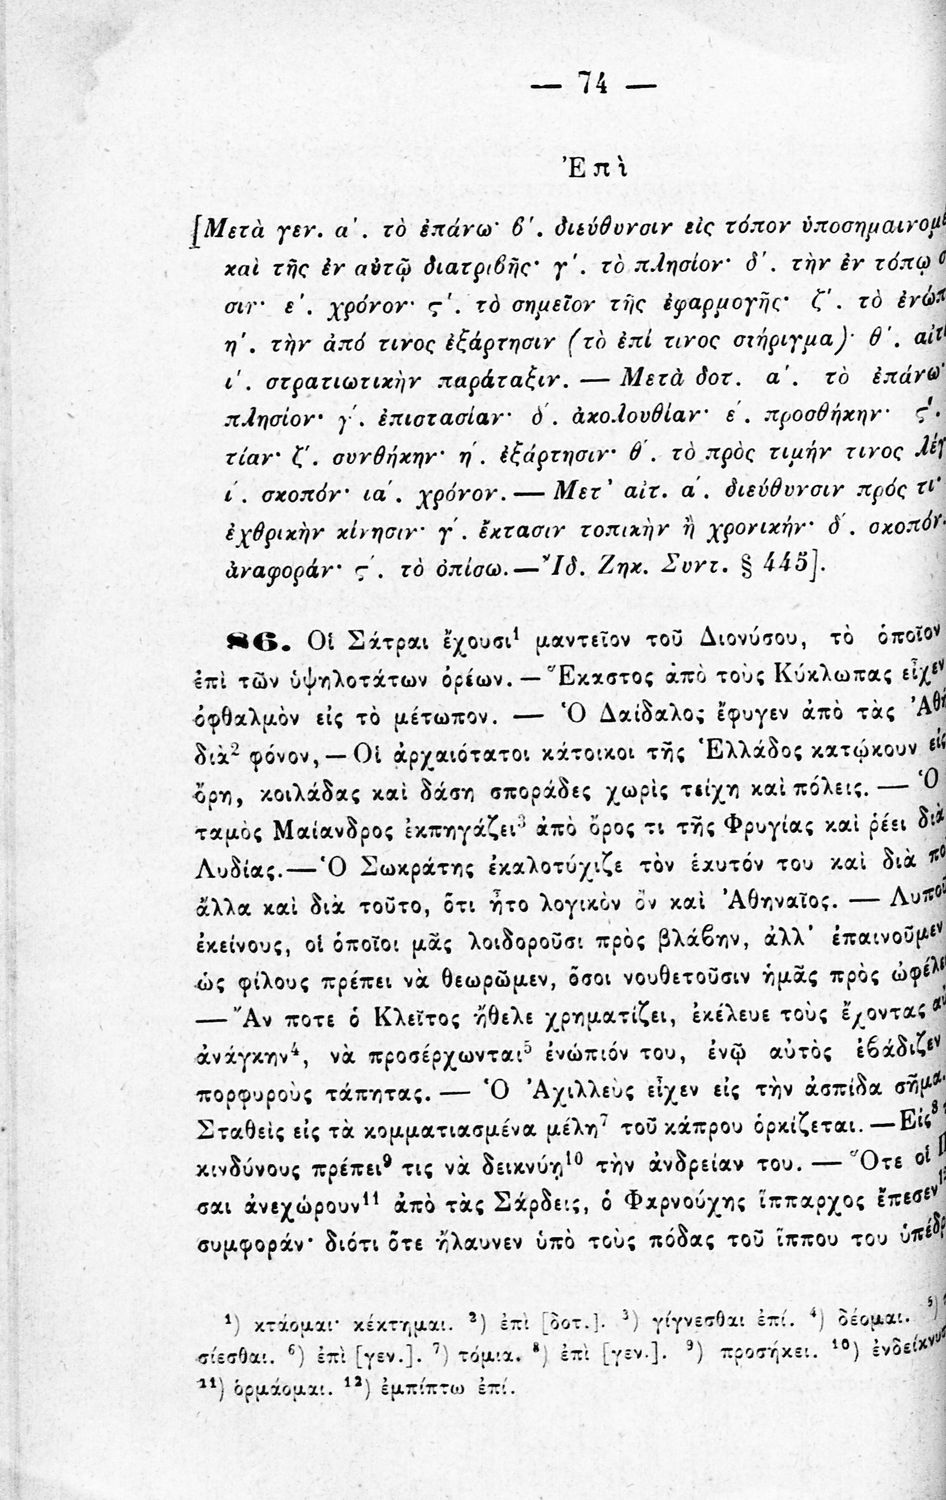 — 74 —
Ἐπὶ
[Μετὰ γεν. α΄. τὸ ἐπάνω· β΄. διεύθυνσιν εἰς τόπον ὑποσημαινομέ
καὶ τῆς ἐν αὐτῷ διατριβῆς· γ΄. τὸ πλησίον· δ΄. τὴν ἐν τόπῳ
σιν· ε΄. χρόνον· ς΄. τὸ σημεῖον τῆς ἐφαρμογῆς· ζ΄. τὸ ἐνώπ
η΄. τὴν ἀπό τινος ἐξάρτησιν (τὸ ἐπί τινος στήριγμα)· θ΄. αἰτι
ι΄. στρατιωτικὴν παράταξιν. — Μετὰ δοτ. α΄. τὸ ἐπάνω·
πλησίον· γ΄. ἐπιστασίαν· δ΄. ἀκολουθίαν· ε΄. προσθήκην· ς΄.
τίαν· ζ΄. συνθήκην· η΄. ἐξάρτησιν· θ΄. τὸ πρὸς τιμήν τινος λέγ
ι΄. σκοπόν· ια΄. χρόνον. — Μετ' αἰτ. α΄. διεύθυνσιν πρός τι·
ἐχθρικὴν κίνησιν· γ΄. ἔκτασιν τοπικὴν ἢ χρονικήν· δ΄. σκοπόν·
ἀναφοράν· ς΄. τὸ ὀπίσω. — Ἴδ. Ζηκ. Συντ. § 445].
86. Οἱ Σάτραι ἔχουσι¹ μαντεῖον τοῦ Διονύσου, τὸ ὁποῖον
ἐπὶ τῶν ὑψηλοτάτων ὀρέων. — Ἕκαστος ἀπὸ τοὺς Κύκλωπας εἶχεν
ὀφθαλμὸν εἰς τὸ μέτωπον. — Ὁ Δαίδαλος ἔφυγεν ἀπὸ τὰς Ἀθή
διὰ² φόνον, — Οἱ ἀρχαιότατοι κάτοικοι τῆς Ἑλλάδος κατῴκουν εἰς
ὄρη, κοιλάδας καὶ δάση σποράδες χωρὶς τείχη καὶ πόλεις. — Ὁ
ταμὸς Μαίανδρος ἐκπηγάζει³ ἀπὸ ὄρος τι τῆς Φρυγίας καὶ ῥέει διὰ
Λυδίας. — Ὁ Σωκράτης ἐκαλοτύχιζε τὸν ἑαυτόν του καὶ διὰ πο
ἄλλα καὶ διὰ τοῦτο, ὅτι ἦτο λογικὸν ὂν καὶ Ἀθηναῖος. — Λυποῦ
ἐκείνους, οἱ ὁποῖοι μᾶς λοιδοροῦσι πρὸς βλάβην, ἀλλ' ἐπαινοῦμεν
ὡς φίλους πρέπει νὰ θεωρῶμεν, ὅσοι νουθετοῦσιν ἡμᾶς πρὸς ὠφέλει
— Ἄν ποτε ὁ Κλεῖτος ἤθελε χρηματίζει, ἐκέλευε τοὺς ἔχοντας αὐ
ἀνάγκην⁴, νὰ προσέρχωνται⁵ ἐνώπιόν του, ἐνῷ αὐτὸς ἐβάδιζεν
πορφυροὺς τάπητας. — Ὁ Ἀχιλλεὺς εἶχεν εἰς τὴν ἀσπίδα σῆμα.
Σταθεὶς εἰς τὰ κομματιασμένα μέλη⁷ τοῦ κάπρου ὁρκίζεται. — Εἰς⁸
κινδύνους πρέπει⁹ τις νὰ δεικνύῃ¹⁰ τὴν ἀνδρείαν του. — Ὅτε οἱ Π
σαι ἀνεχώρουν¹¹ ἀπὸ τὰς Σάρδεις, ὁ Φαρνούχης ἵππαρχος ἔπεσεν
συμφοράν· διότι ὅτε ἤλαυνεν ὑπὸ τοὺς πόδας τοῦ ἵππου του ὑπέδρ
¹) κτάομαι· κέκτημαι. ²) ἐπὶ [δοτ.]. ³) γίγνεσθαι ἐπί. ⁴) δέομαι. ⁵)
σίεσθαι. ⁶) ἐπὶ [γεν.]. ⁷) τόμια. ⁸) ἐπὶ [γεν.]. ⁹) προσήκει. ¹⁰) ἐνδείκνυ
¹¹) ὁρμάομαι. ¹²) ἐμπίπτω ἐπί.